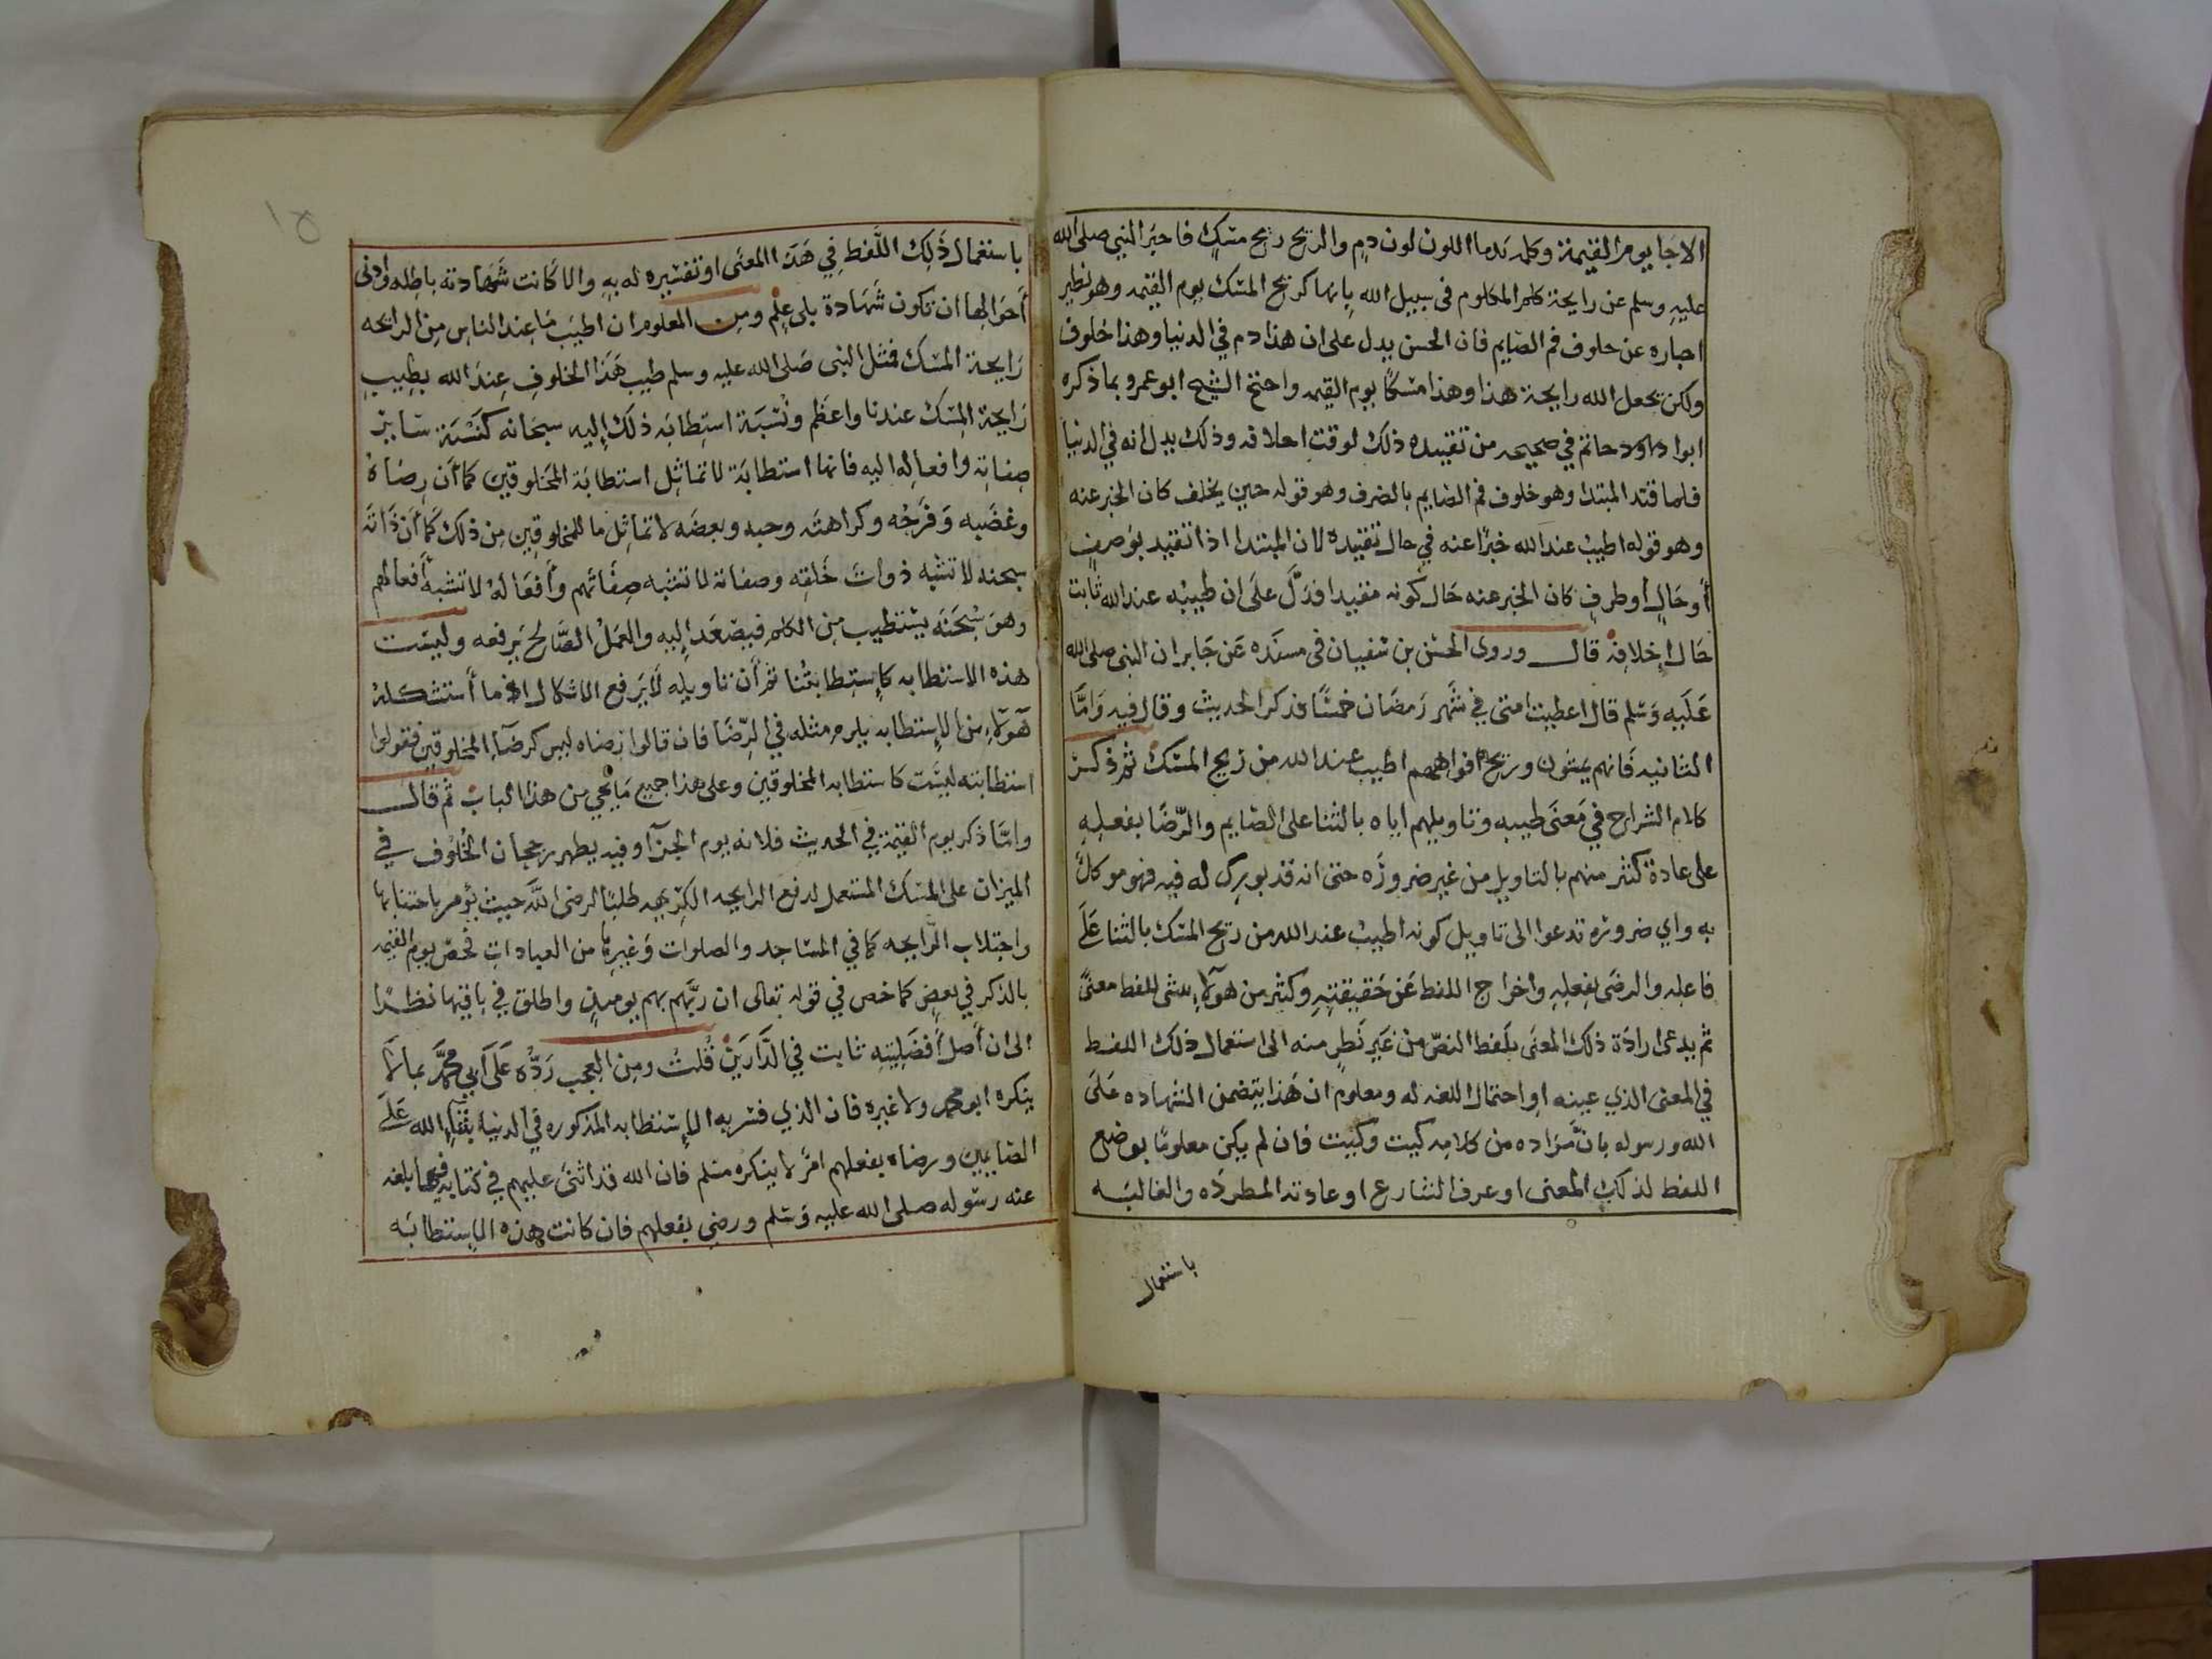 الاجا يوم القيمة وكلمه تدما اللون لون دم والريح ريح مسك فاخبر النبي صلى الله
عليه وسلم عن رايحة كلم المكلوم في سبيل الله بانها كريح المسك يوم القيمه وهو نظير
اخباره عن خلوف فم الصايم فان الحس يدل على ان هذا دم في الدنيا وهذا خلوف
ولكن يجعل الله رايحة هذا وهذا مسكا يوم القيمه واحتج الشيخ ابو عمرو بما ذكره
ابو حاتم في صحيحه من تقييده ذلك لوقت اخلافه وذلك يدل انه في الدنيا
فلما قيد المبتدا وهو خلوف فم الصايم بالظرف وهو قوله حين يخلف كان الخبر عنه
وهو قوله اطيب عند الله خبرًا عنه في حال تقييده لان المبتدا اذا تقيد بوصفٍ
أو حَالٍ أو ظرفٍ كان الخبر عنه حَال كونه مقيدا فدَلَّ علَى ان طيبه عند الله ثابت
حَال إخلافِه قال وروى الحسَن بن سفيان في مسنَده عَن جَابر ان النبي صلى الله
عَلَيه وَسَلم قال اعطيت امتى في شَهر رَمضَان خمسًا فذكر الحديث وقال فيه وَامَّا
الثانيه فَانهم يمسُون وريح افواههم اطيب عند الله من ريح المسك ثم ذكر
كلام الشراح في مَعنَى طيبه وتاويلهم اياه بالثنا على الصَايم والرّضَا بفعله
على عادة كثير منهم بالتاويل من غير ضرورَه حتى انه قد بورك له فيه فهو موكلٌ
به واي ضرورة تدعوا الى تاويل كونه اطيب عند الله من ريح المسك بالثنا عَلَى
فاعله والرضَى بفعلِه واخراج اللفظ عَن حَقيقتِهِ وكثير من هولآءِ ينشي للفظ معنىً
ثم يدعى ارادَة ذلك المعنى بلَفظ النصّ من غَيرِ نَظرٍ منه الى استعمَال ذلك اللفظ
في المعنى الذي عينه او احتمال اللغه له ومعلوم ان هَذا يتضمن الشهاده عَلَى
الله ورسوله بانَّ مُرَاده من كلامه كيت وكيت فان لم يكن معلومًا بوضع
اللفظ لذلك المعنى او عرف الشارع او عادته المطردَه والغالبَه
باستعمال
١٥
باستعمال ذَلِك اللَّفظ فِي هَذَا المعنَى او تفسيره له بهِ والا كَانت شَهَادته باطله وأدنى
أحوَالِها ان تكون شَهَادة بلى علمٍ ومن المعلوم ان اطيَب مَا عِند الناس مِن الرايحه
رَايحة المسك فمثل النبى صَلى الله عليه وسلم طيب هَذَا الخلوفِ عِندَ الله بطيبِ
رَايحَة المِسك عندنا واعظَم ونسبَة استِطابَه ذلك إليه سبحانه كنسْبَة سَاير
صِفاتِه وافعالِه اليه فانها استطابَة لا تماثِل استطابَة المخلوقين كما أنّ رِضَاهُ
وغضَبه وَفرَحُه وكراهتَه وحبه وبغضَه لا تماثِل ما للمخلوقين مِن ذلك كَما أنَّ ذَاتَه
سبحنه لا تشبه ذواتَ خَلقِه وصفاته لا تشبه صِفَاتهم وأَفعَالهُ لا تشبه أَفعالهم
وهوَ سُبحَنَه يستطيب مِن الكلم فيَصعَد إليه والعَملُ الصَّالحُ يَرفعه وليسَت
هذه الاستطابه كاستِطابتنا ثم أنَّ تاويله لَا يَرفع الاشكال اذ ما أستشكله
هَولآءِ من الإستطابه يلزم مثله في الرّضَا فان قالوا رضاه ليس كرضَآءِ المخلوقين فقولوا
استطابته ليسَت كاستطابه المخلوقين وعلى هذا جميع مَا يجي من هذا الباب ثم قال
وامَّا ذكر يوم القيمة في الحديث فلانه يوم الجزآ وفيه يظهر رجحان الخُلُوف في
الميزان على المسك المستعمل لدفع الرايحه الكريهه طلبًا لرضى اللَّه حيث يؤمر باجتنابها
واجتلاب الرّايحه كما في المسَاجد والصلوات وَغيرها من العبادات فخصّ يوم القيمه
بالذكر في بعضٍ كما خص في قوله تعالى ان ربَّهم بهم يوميذٍ واطلق في باقيها نظرًا
الى ان أَصلَ أَفضَليتِهِ ثابت في الدَّارَين قُلتُ ومن العجب رَدُّه عَلَى أبي محمَّد بمَا لَا
ينكره ابو محمد ولا غيره فان الذي فسر به الإستطابه المذكوره في الدنيا بثنآءِ الله عَلَى
الصَايمين ورضاه بفعلهم امرٌ لا ينكره مسَلم فان الله قد اثنىَ عليهم في كتابه فيما بلغه
عنه رسَوله صلى الله عليه وَسَلم ورضِى بفعلهم فان كانت هذه الاستطابَه